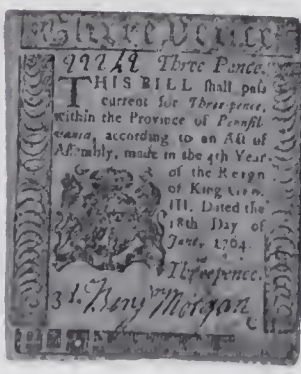 Three Pence
Three Pence.
THIS BILL shall pass
current for Three-pence,
within the Province of Pennsyl
vania, according to an Act of
Assembly, made in the 4th Year
of the Reign
of King
III. Dated the
18th Day of
June, 1764.
Threepence.
Benj Morgan